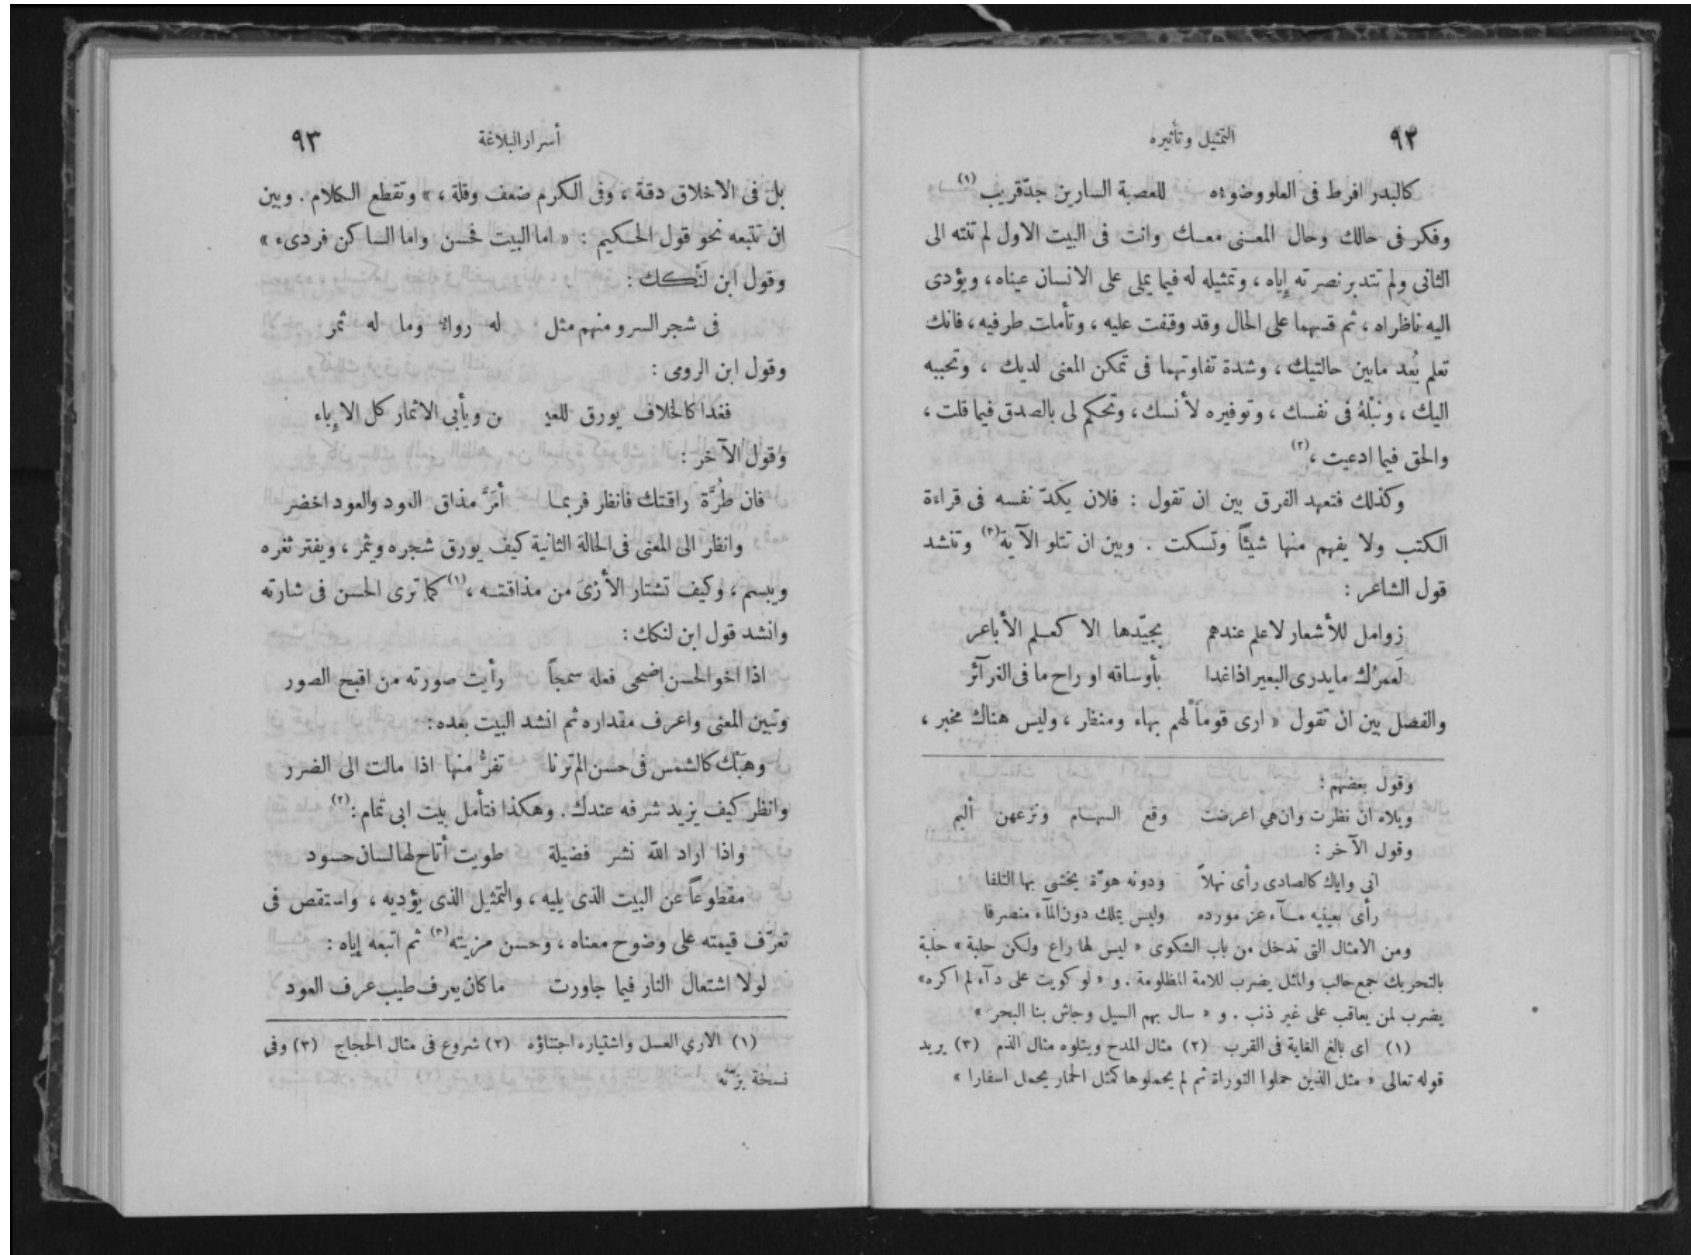 ٩٢ التمثيل وتأثيره
كالبدر افرط فى العلو وضوءه للعصبة السارين جدّ قريب (١)
وفكر فى حالك وحال المعنى معك وانت فى البيت الاول لم تنته الى
الثانى ولم تتدبر نصرته إياه ، وتمثيله له فيما يملى على الانسان عيناه ، ويؤدى
اليه ناظراه ، ثم قسهما على الحال وقد وقفت عليه ، وتأملت طرفيه ، فانك
تعلم بُعد مابين حالتيك ، وشدة تفاوتهما فى تمكن المعنى لديك ، وتحببه
اليك ، ونبْلهُ فى نفسك ، وتوفيره لأنسك ، وتحكم لى بالصدق فيما قلت ،
والحق فيما ادعيت ، (٢)
وكذلك فتعهد الفرق بين ان تقول : فلان يكدّ نفسه فى قراءة
الكتب ولا يفهم منها شيئًا وتسكت . وبين ان تتلو الآية (٣) وتنشد
قول الشاعر :
زوامل للأشعار لاعلم عندهم بجيّدها الا كعلم الأباعر
لَعمرُك مايدرى البعير اذاغدا بأوساقه او راح ما فى الغرآئر
والفصل بين ان تقول « ارى قوماً لهم بهاء ومنظار ، وليس هناك مخبر ،
وقول بعضهم :
ويلاه ان نظرت وان هي اعرضت وقع السهام ونزعهن أليم
وقول الآخر :
انى واياك كالصادى رأى نهلاً ودونه هوّة يخشى بها التلفا
رأى بعينيه مآء عز مورده وليس يملك دون المآء منصرفا
ومن الامثال التى تدخل من باب الشكوى « ليس لها راع ولكن حلبة » حلبة
بالتحريك جمع حالب والمثل يضرب للامة المظلومة . و « لو كويت على دآء لم اكره»
يضرب لمن يعاقب على غير ذنب . و « سال بهم السيل وجاش بنا البحر »
(١) اى بالغ الغاية فى القرب (٢) مثال المدح ويتلوه مثال الذم (٣) يريد
قوله تعالى « مثل الذين حملوا التوراة ثم لم يحملوها كمثل الحمار يحمل اسفارا »
أسرار البلاغة ٩٣
بل فى الاخلاق دقة ، وفى الكرم ضعف وقلة ، » وتقطع الكلام . وبين
ان تتبعه نحو قول الحكيم : « اما البيت فحسن واما الساكن فردىء »
وقول ابن لَنْكك :
فى شجر السرو منهم مثل له رواء وما له ثمر
وقول ابن الرومى :
فغدا كالخلاف يورق للعيـ ـن ويأبى الاثمار كل الإباء
وقول الآخر :
فان طُرَّة راقتك فانظر فربما أمَرَّ مذاق العود والعود اخضر
وانظر الى المعنى فى الحالة الثانية كيف يورق شجره ويثمر ، ويفتر ثغره
ويبسم ، وكيف تشتار الأرْىَ من مذاقته ، (١) كما ترى الحسن فى شارته
وانشد قول ابن لنكك :
اذا اخو الحسن اضحى فعله سمجاً رأيت صورته من اقبح الصور
وتبين المعنى واعرف مقداره ثم انشد البيت بعده :
وهَبْك كالشمس فى حسن الم ترنا نفرُّ منها اذا مالت الى الضرر
وانظر كيف يزيد شرفه عندك . وهكذا فتأمل بيت ابى تمام : (٢)
واذا اراد اللّه نشر فضيلة طويت أتاح لها لسان حسود
مقطوعاً عن البيت الذى يليه ، والتمثيل الذى يؤديه ، واستقص فى
تعرّف قيمته على وضوح معناه ، وحسن مزيته (٣) ثم اتبعه إياه :
لولا اشتعال النار فيما جاورت ما كان يعرف طيب عرف العود
(١) الاري العسل واشتياره اجتناؤه (٢) شروع فى مثال الحجاج (٣) وفي
نسخة بزته